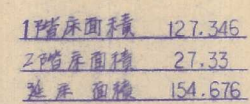 1階床面積 127.346
2階床面積 27.33
延床面積 154.676